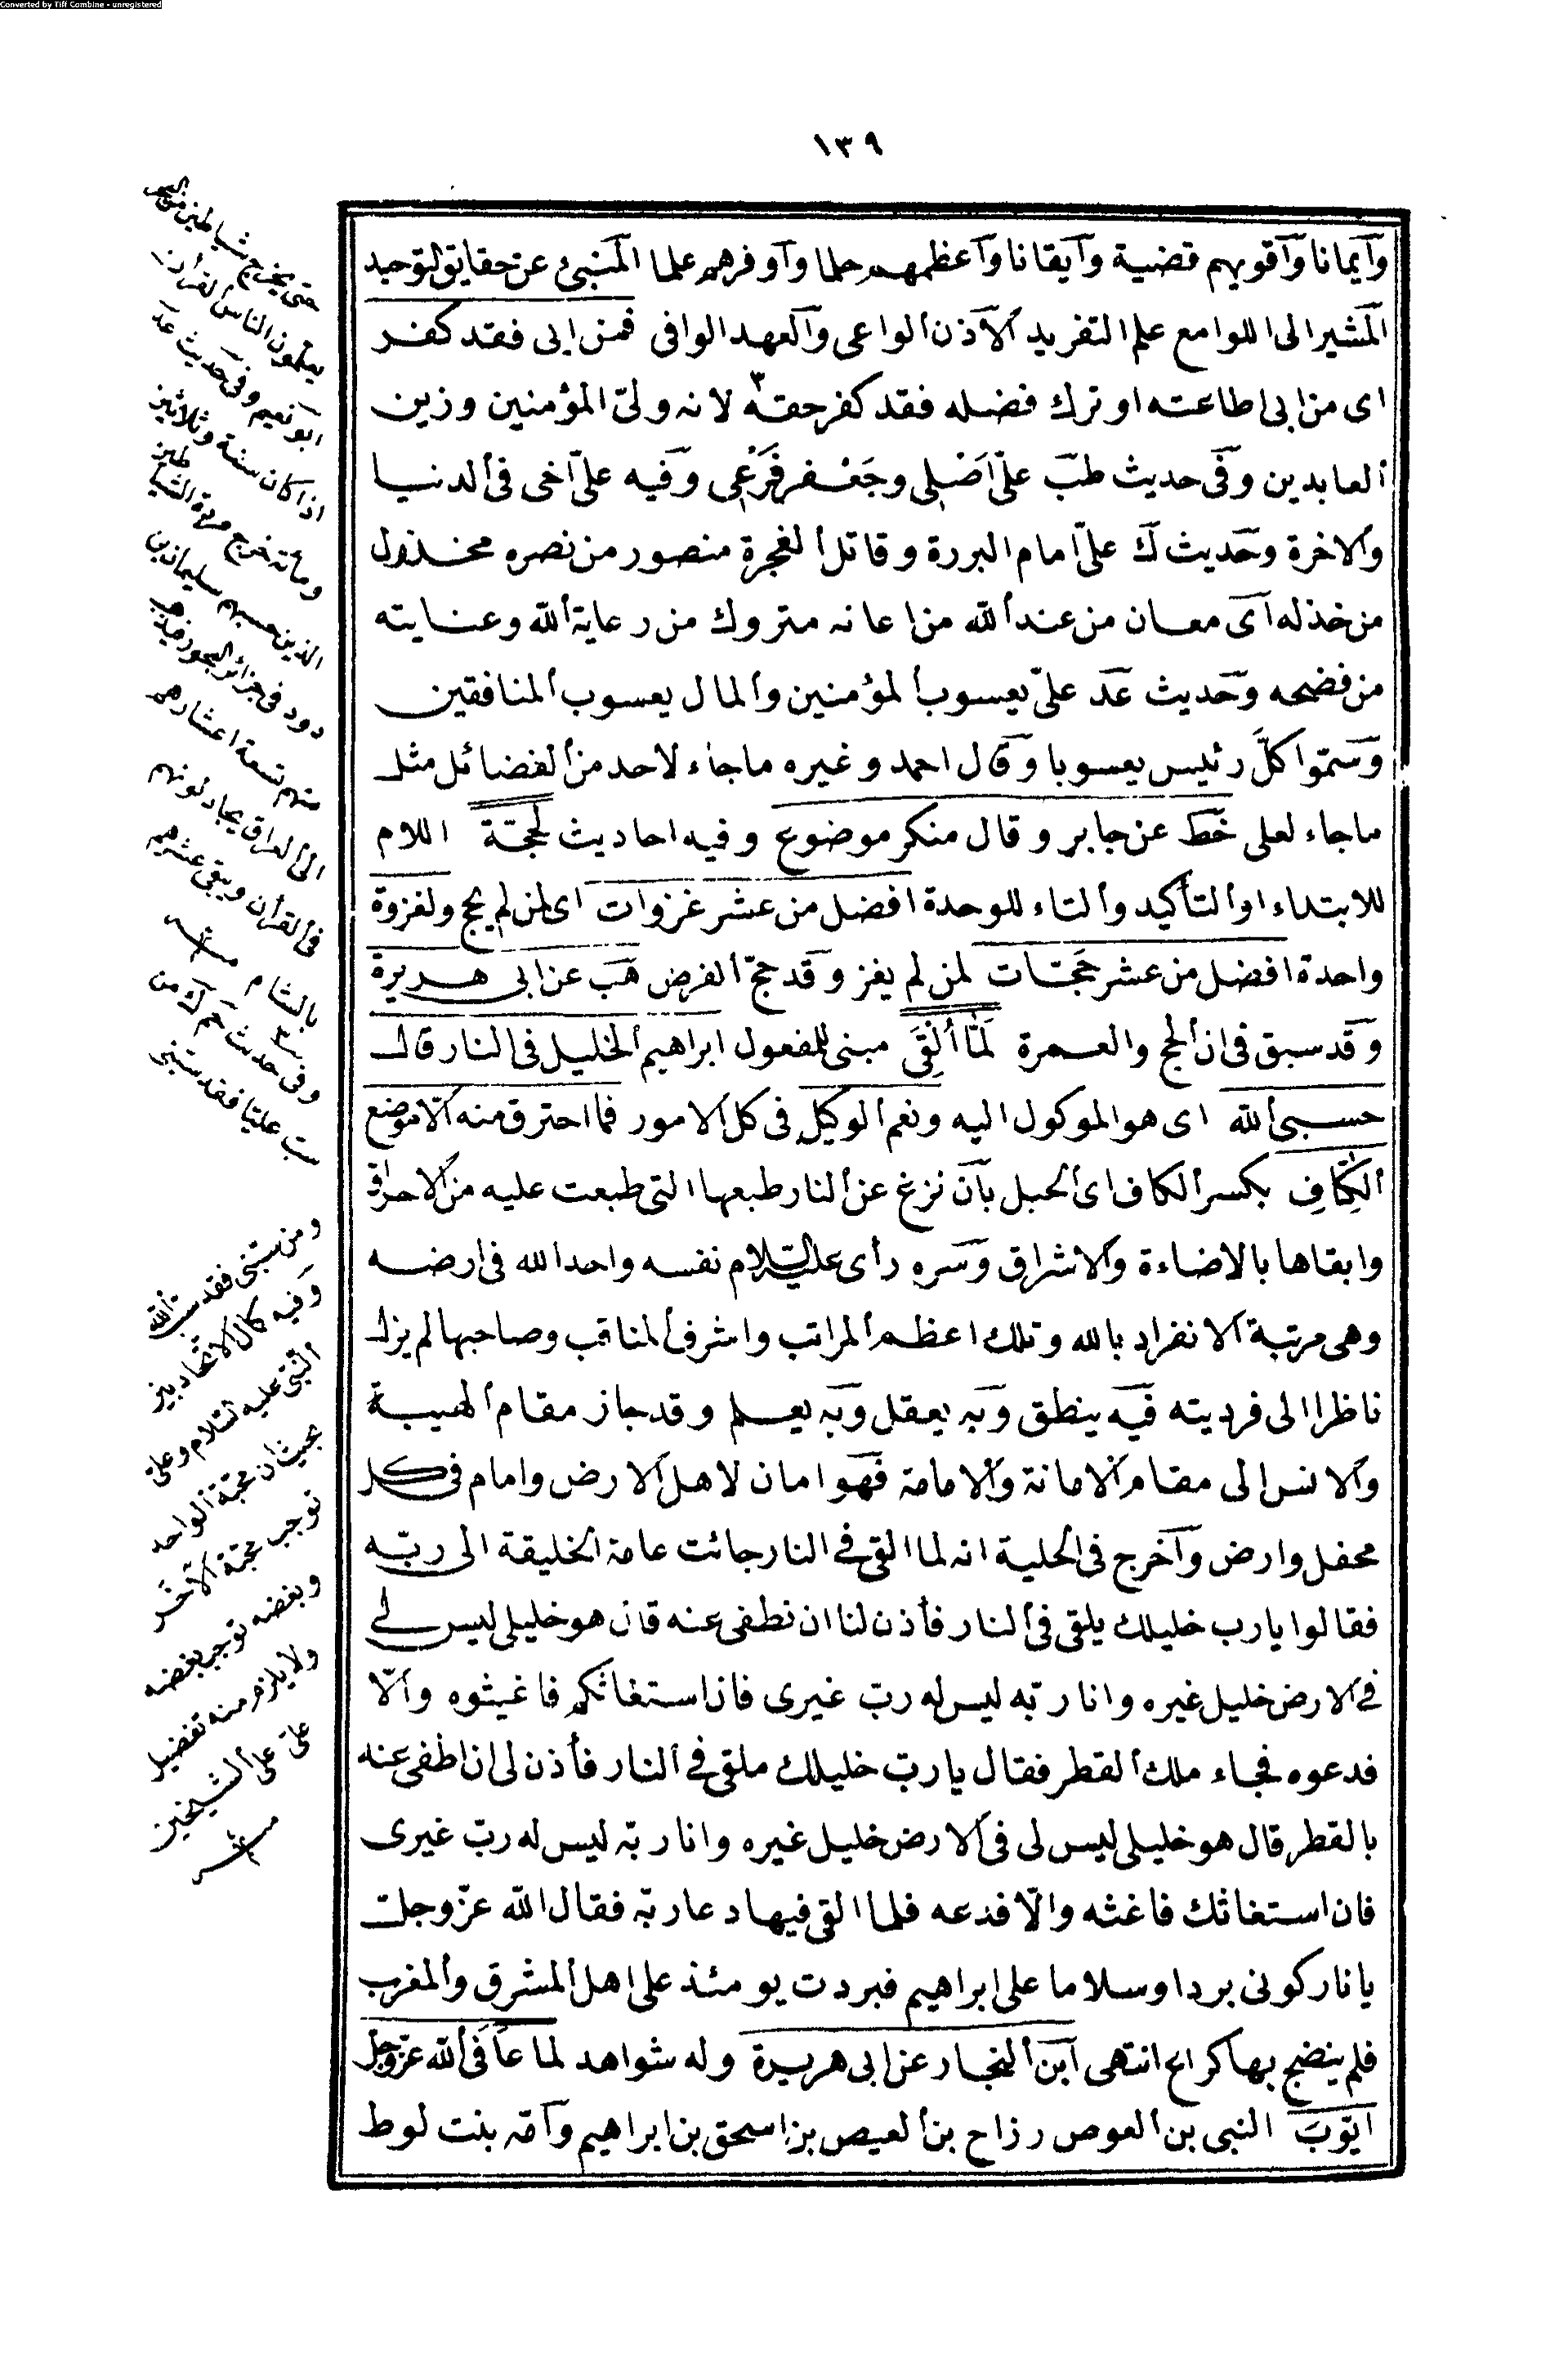 Converted by Tiff Combine - unregistered
١٣٩
وايمانا واقويهم قضية وايقانا واعظمهم حلما واوفرهم علما المنبئ عن حقايق التوحيد
المشير الى اللوامع علم التفريد الاذن الواعى والعهد الوافى فمن ابى فقد كفر
اى من ابى اطاعته او ترك فضله فقد كفر حقه ٣ لانه ولىّ المؤمنين وزين
العابدين وفى حديث طب علىّ اَصْلى وجَعْفر فَرْعى وفيه علىّ اخى فى الدنيا
والاخرة وحديث ك علىّ امام البررة وقاتل الفجرة منصور من نصره مخذول
من خذله اى معان من عند الله من اعانه متروك من رعاية الله وعنايته
من فضحه وحديث عد علىّ يعسوب المؤمنين والمال يعسوب المنافقين
وسمّوا كلّ رئيس يعسوبا وقال احمد وغيره ماجاء لاحد من الفضائل مثل
ماجاء لعلى خط عن جابر وقال منكر موضوع وفيه احاديث لحجّة اللام
للابتداء او التأكيد والتاء للوحدة افضل من عشر غزوات اى لمن لم يحج ولغزوة
واحدة افضل من عشر حَجّات لمن لم يغز وقد حجّ الفرض هب عن ابى هريرة
وقد سبق فى ان الحج والعمرة لَمّا اُلْقِىَ مبنى للمفعول ابراهيم الخليل فى النار قال
حسبى الله اى هو الموكول اليه ونعم الوكيل فى كل الامور فما احترق منه الا موضع
الكِتافِ بكسر الكاف اى الحبل بان نزغ عن النار طبعها التى طبعت عليه من الاحراق
وابقاها بالاضاءة والاشراق وسره رأى عليه السلام نفسه واحدا لله فى ارضه
وهى مرتبة الانفراد بالله وتلك اعظم المراتب واشرف المناقب وصاحبها لم يزل
ناظرا الى فرديته فيه ينطق وبه يعقل وبه يعلم وقد جاز مقام الهيبة
والانس الى مقام الامانة والامامة فهو امان لاهل الارض وامام فى كل
محفل وارض واخرج فى الحلية انه لما القى فى النار جائت عامة الخليقة الى ربّه
فقالوا يارب خليلك يلقى فى النار فأذن لنا ان نطفى عنه قال هو خليلى ليس لى
فى الارض خليل غيره وانا ربّه ليس له ربّ غيرى فان استغاثكم فاغيثوه والّا
فدعوه فجاء ملك القطر فقال ياربّ خليلك ملقى فى النار فأذن لى ان اطفى عنه
بالقطر قال هو خليلى ليس لى فى الارض خليل غيره وانا ربّه ليس له ربّ غيرى
فان استغاثك فاغثه والّا فدعه فلما القى فيها دعا ربّه فقال الله عزّ وجلّ
يا نار كونى بردا وسلاما على ابراهيم فبردت يومئذ على اهل المشرق والمغرب
فلم ينضج بها كراع انتهى ابن النجار عن ابى هريرة وله شواهد لما عافى الله عزّ وجلّ
ايّوبَ النبى بن العوص رزاح بن العيص بن اسحق بن ابراهيم وامّه بنت لوط
حتى يخرج شياطين من البحر
يعلمون الناس القرأن
ابو نعيم وفى حديث عد
اذا كان سنة وثلاثين
ومأة خرج مردة الشياطين
الذين حبسهم سليمان بن
دود فى جزائر البحور فيذهب
منهم تسعة اعشارهم
الى العراق يجادلونهم
فى القرأن ويبقى عشرهم
بالشام منه
٣ وفى حديث حم ك من
سب عليّا فقد سبّنى
ومن سبّنى فقد سبّ الله
وفيه كمال الاتحاد بين
النبى عليه السلام وعلى
بحيث ان محبّة الواحد
توجب محبّة الآخر
وبغضه توجب بغضه
ولا يلزم منه تفضيل
علىّ على الشيخين
منه